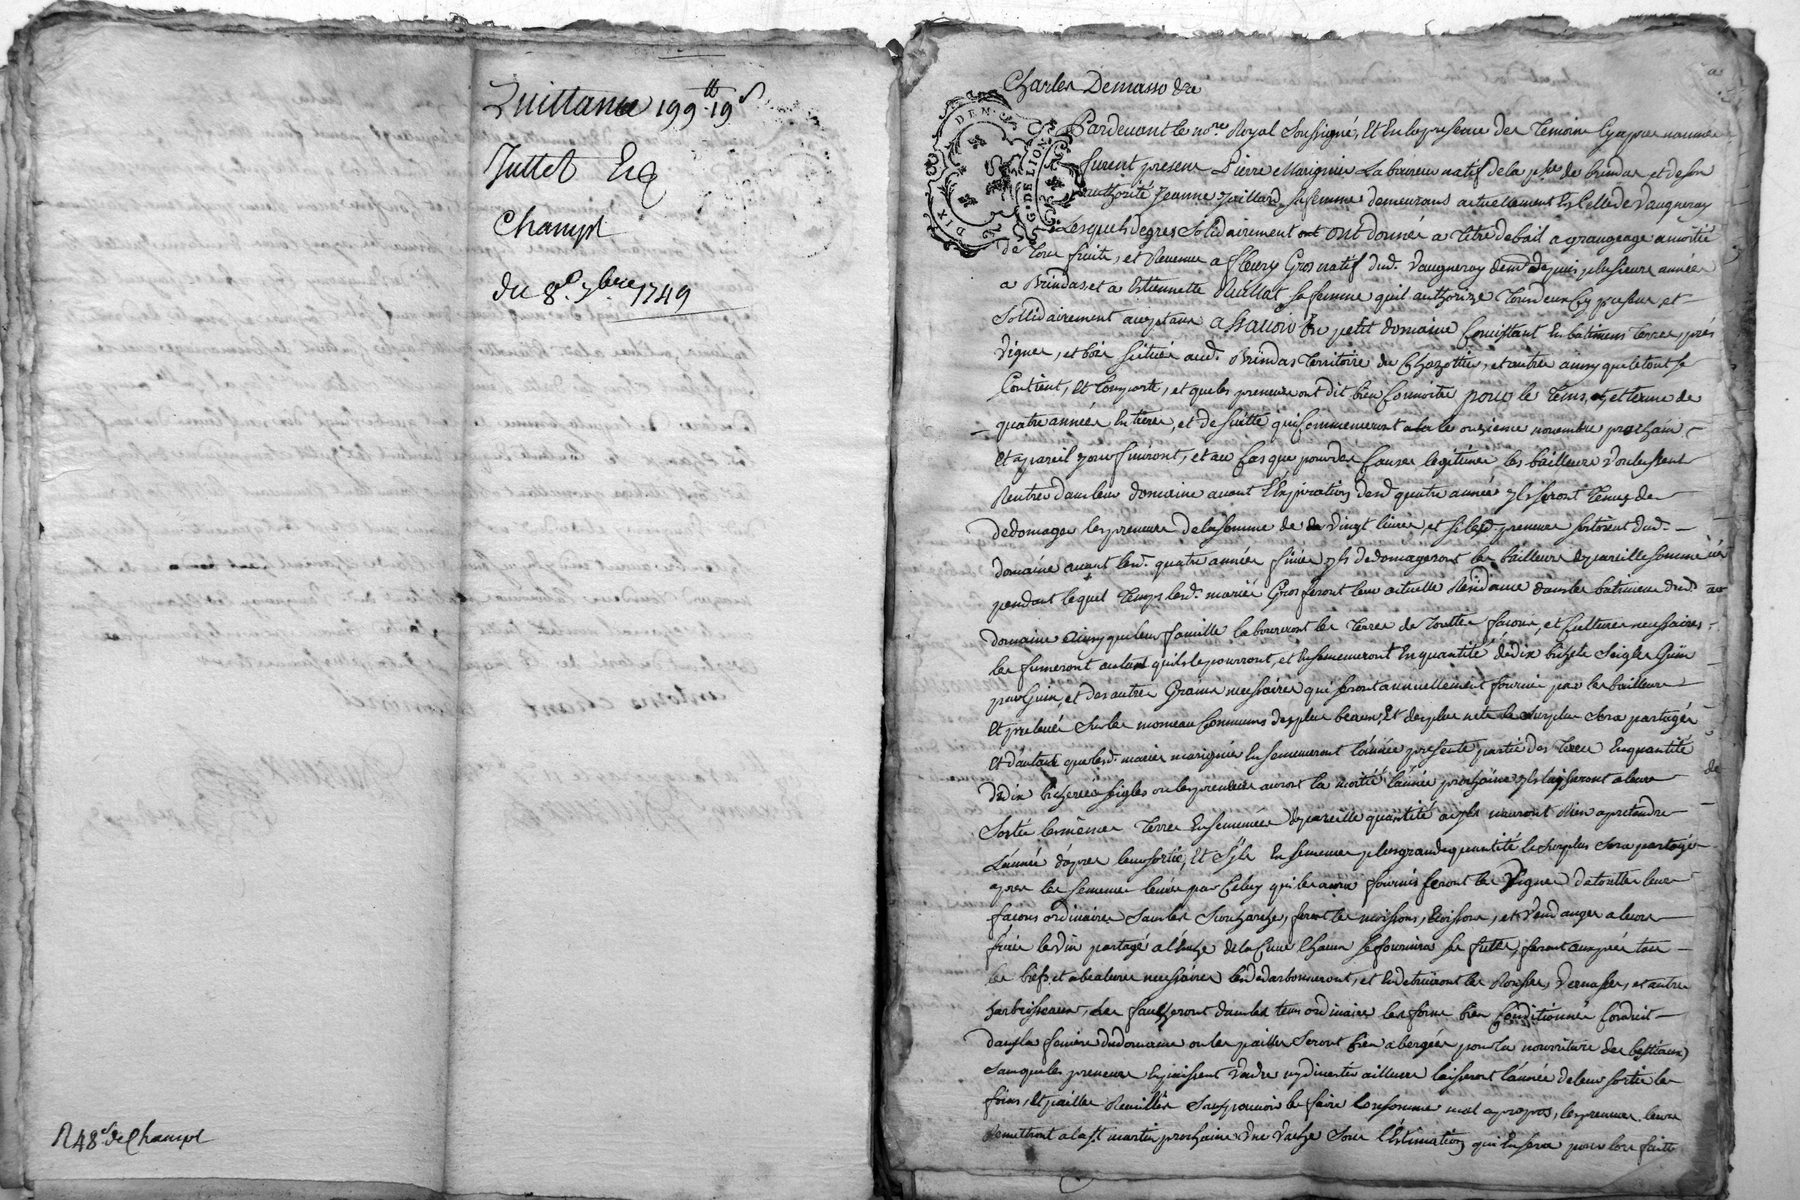 Quittance 199tt 19s
Juttet Et
Champt
du 8e 7bre 1749
R 48s de Champt
Charles Demasso &c
DIX DEN. G. DE LION
Pardevant le nore Royal Soussigné, Et En la presence des Temoins Cy apres nommés
furent presens Pierre Marignier Laboureur natif de la psse de brindas et de son
authorité Jeanne Gaillard sa femme demeurans actuellement En Celle de Vaugneray
Lesquels de gres Solidairement ont donnée a titre de bail a grangeage a moitié
de tous fruits, et Revenus a fleury Gros natif dud. Vaugneray demt depuis plusieurs année
a Brindas et a Etiennette sa femme quil authorize Tous deux Cy presens et
Sollidairement acceptans a Scavoir Un petit domaine Consistant En batimens terres prés
Vignes, et bois Situés aud. Brindas territoire du Chazottier, et autres ainsy que le tout se
Contient, Et Comporte, et que les preneurs ont dit bien Connoitre pour le Tems, et terme de
quatre années Entieres, et de suitte qui Commenceront le onzieme novembre prochain
Et a pareil jour finiront, et au Cas que pour des Causes legitimes les bailleurs Voulussent
Rentrer dans leur domaine avant l'Expiration desd quatre année ils seront tenus de
dedomager les preneurs de la somme de vingt livres et si lesd. preneurs sortoient dud.
domaine avant lesd. quatre année finies ils dedomageront les bailleurs de pareille somme
pendant lequel Temps lesd. mariés Gros feront leur actuelle Residence dans les batimens dud.
domaine ainsy que leur famille laboureront les Terres de Touttes facons, et Cultures necessaires
les fumeront autant quils le pourront, et Ensemenceront En quantité de dix bichets Seigle
et des autres Grains necessaires qui seront annuellement fournis par les bailleurs
Et prelevés Sur les monceaux Communs des plus beaux, Et des plus nets le Surplus Sera partagés
Et d'autant que lesd. mariés marignier Ensemenceront l'année presente partie des Terres En quantité
de dix bicherées seigles ou les preneurs auront la moitié l'année prochaine ils laisseront a leur
Sortie les mêmes Terres Ensemencées de pareille quantité ils n'auront Rien a pretendre
L'année d'apres leur sortie, Et S'ils En semence plus grande quantité le Surplus Sera partagé
apres les semences levées par Celuy qui les aura fournis feront les Vignes de touttes leurs
facons ordinaires Sans les Surcharger, feront les moissons, et Vendanges a leurs
frais le Vin partagé a l'anche de la Cuve Chacun se fournira sa futte, feront aux prés tous
les biefs et abreuvoirs necessaires les darbonneront, et En detruiront les Ronsses, Vernasses, et autres
harbrisseaux, Les faucheront dans les tems ordinaires les foins bien Conditionnés Conduit
dans la feniere dud domaine ou les pailles Seront bien abergées pour la nourriture des bestiaux
Sans que les preneurs En puissent Vendre ny divertir ailleurs laisseront l'année de leur sortie les
foins, Et pailles Recuillis Sans pouvoir les faire Consommer mal a propos, les preneurs leurs
Remettront a la St martin prochaine Une Vache Sous l'Estimation qui En sera pour lors faitte